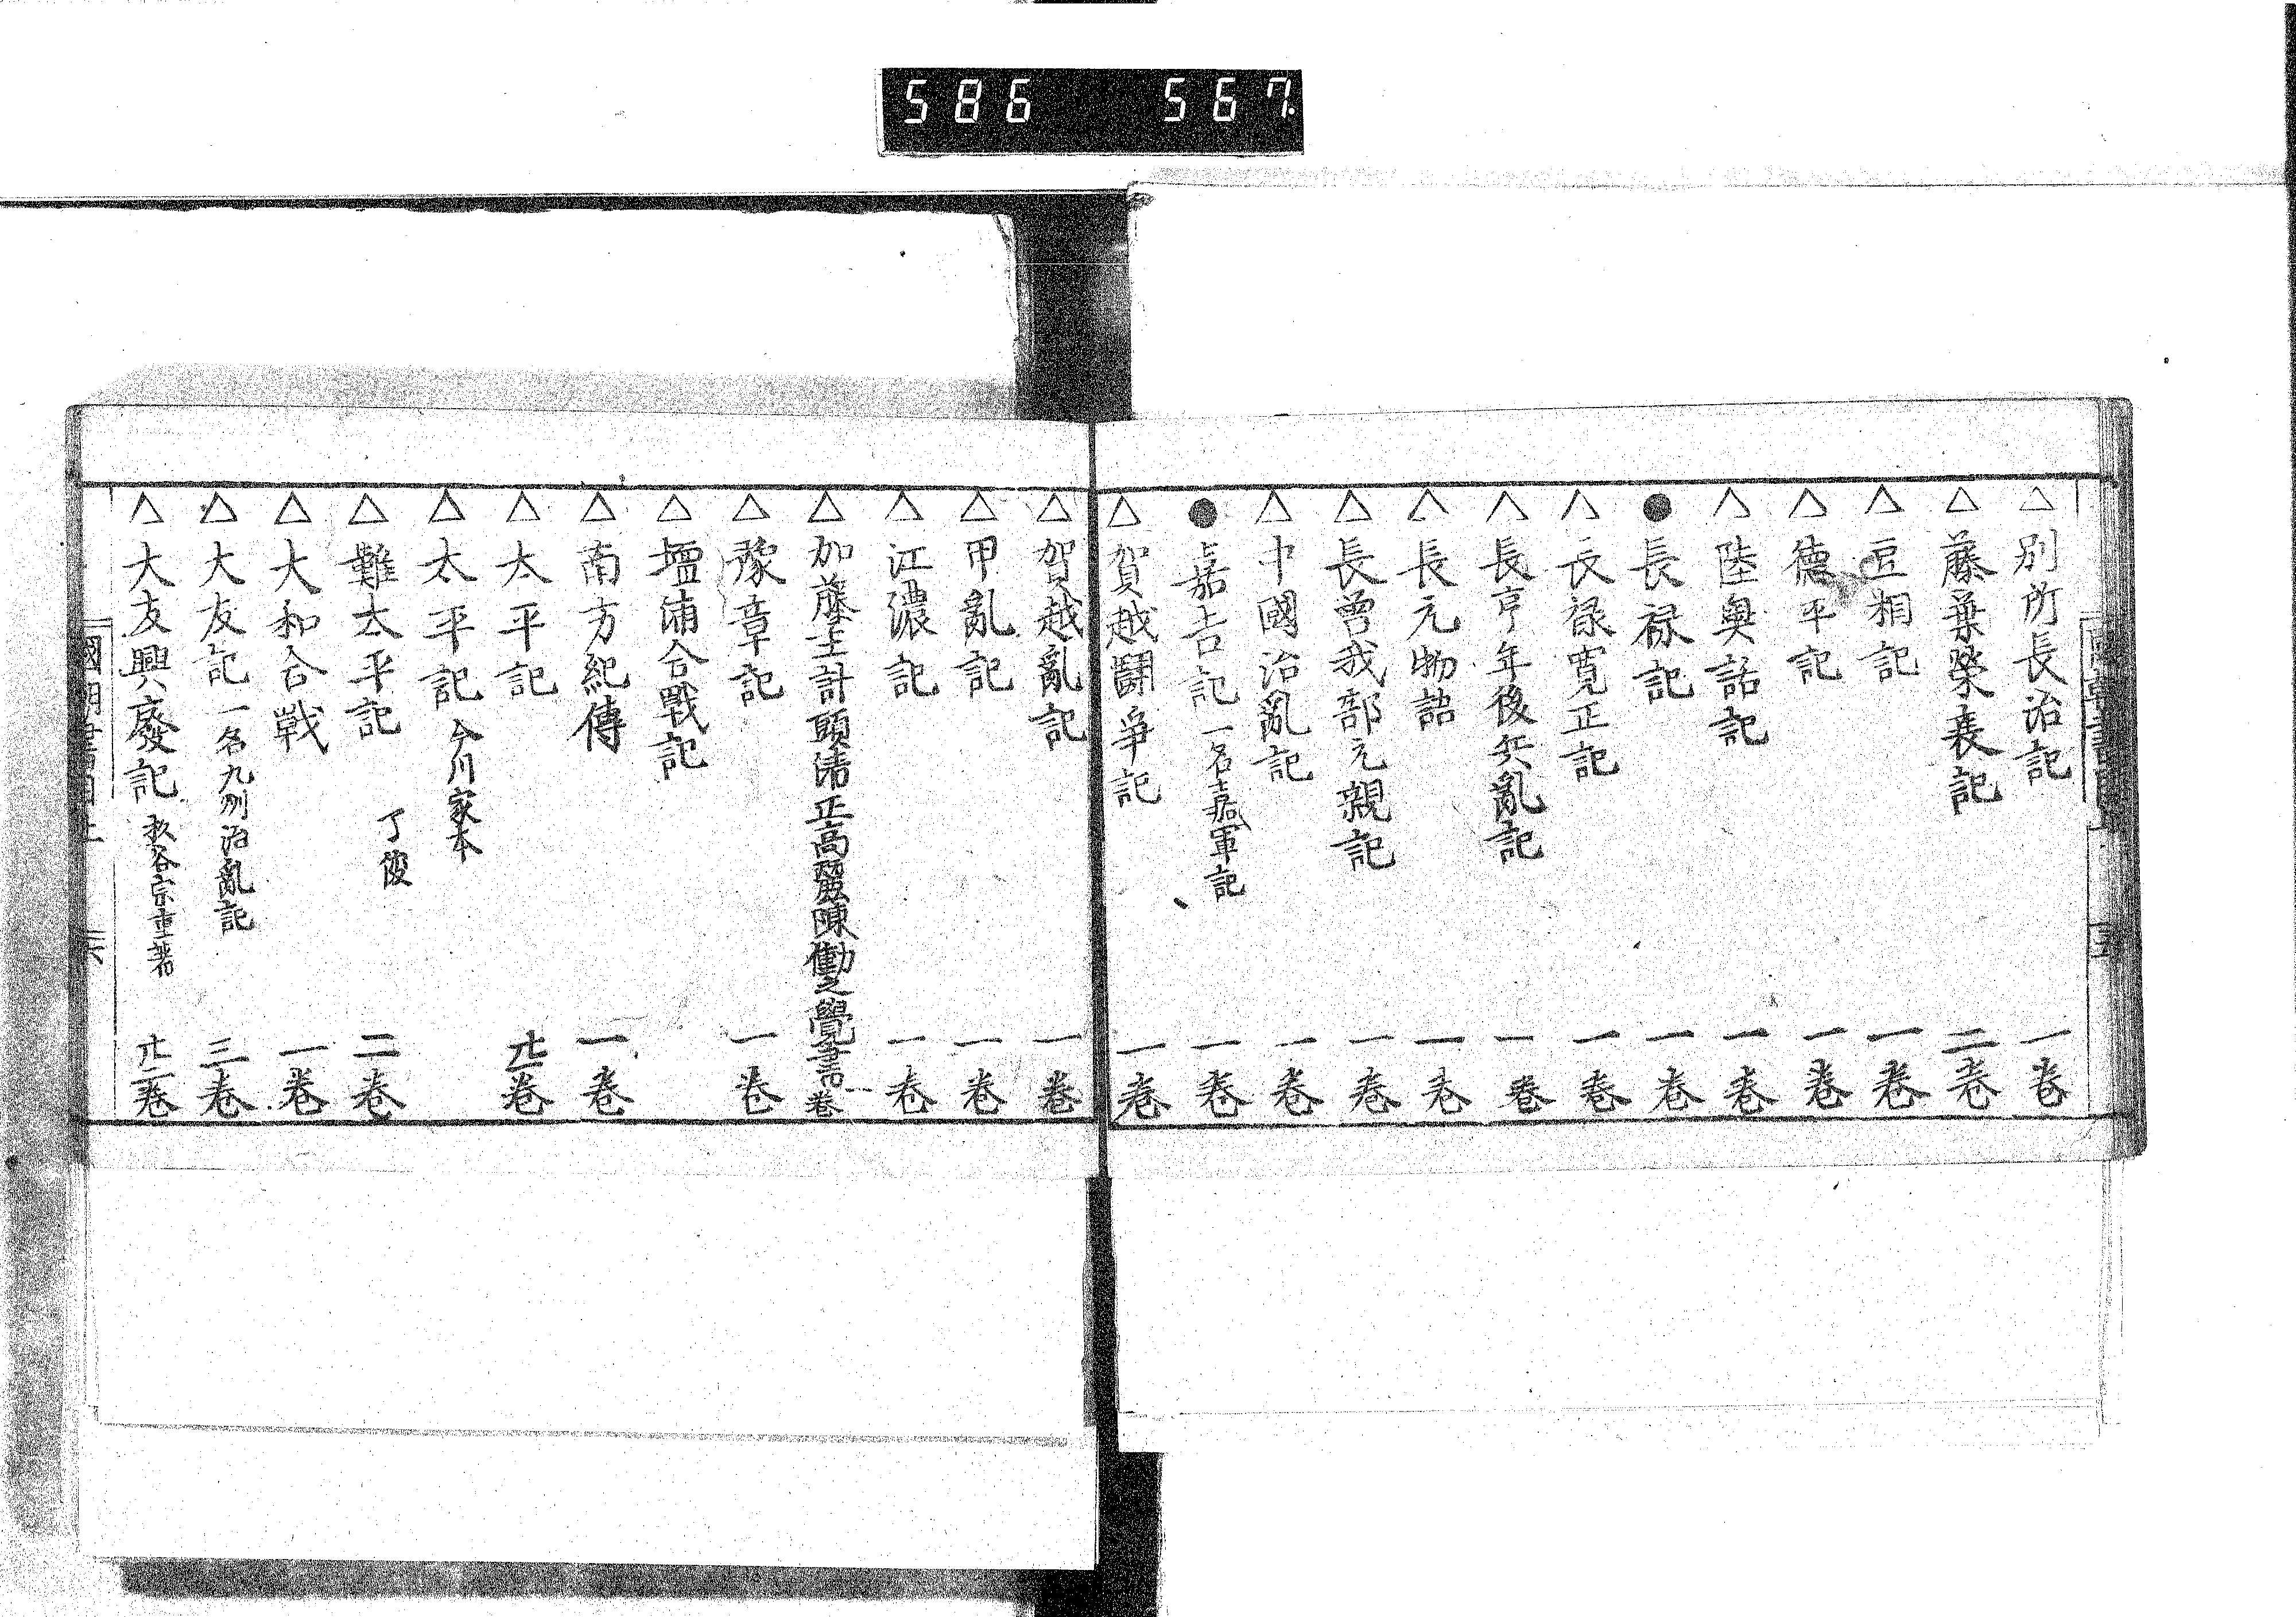 586 567.
△別所長治記 一卷
△藤葉榮衰記 二卷
△豆相記 一卷
△德平記 一卷
△陸奧話記 一卷
●長祿記 一卷
△長祿寬正記 一卷
△長亨年後兵亂記 一卷
△長元物語 一卷
△長曾我部元親記 一卷
△中國治亂記 一卷
●嘉吉記 一名嘉吉軍記 一卷
△賀越鬪爭記 一卷
△賀越亂記 一卷
△甲亂記 一卷
△江濃記 一卷
△加藤主計頭清正高麗陳働之覺書 一卷
△豫章記 一卷
△壇浦合戰記
△南方紀傳 一卷
△太平記 卷
△太平記 今川家本
△難太平記 了俊 二卷
△大和合戰 一卷
△大友記 一名九刕治亂記 三卷
△大友興廢記 杦谷宗重著 卷
國朝書目上 六